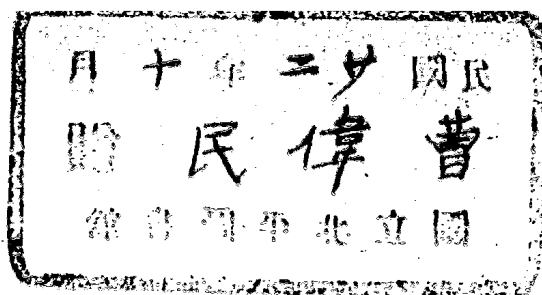 民國廿二年十月
曹偉民贈
國立北平圖書館